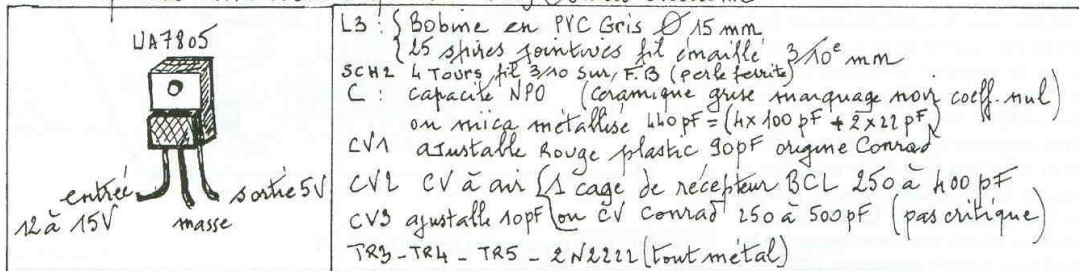 UA7805
entrée
12 à 15V
masse
sortie 5V
L3 : { Bobine en PVC Gris Ø 15 mm
{ 25 spires jointives fil émaillé 3/10e mm
SCH2 4 Tours fil 3/10 sur F.B (perle ferrite)
C : capacité NPO (céramique grise marquage noir coeff. nul)
ou mica métallisé 440 pF = (4x100 pF + 2x22 pF)
CV1 ajustable Rouge plastic 90pF origine Conrad
CV2 CV à air { 1 cage de récepteur BCL 250 à 400 pF
CV3 ajustable 10pF ou CV Conrad 250 à 500pF (pas critique)
TR3 - TR4 - TR5 - 2N2222 (tout métal)